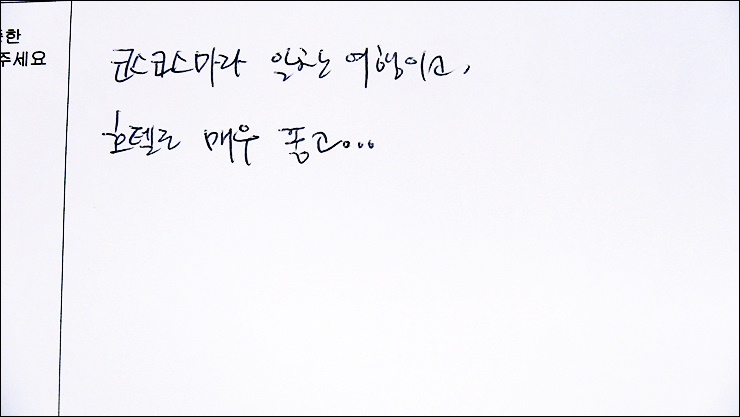 한
주세요
코스코스마다 여행이고,
호텔도 매우 좋고...